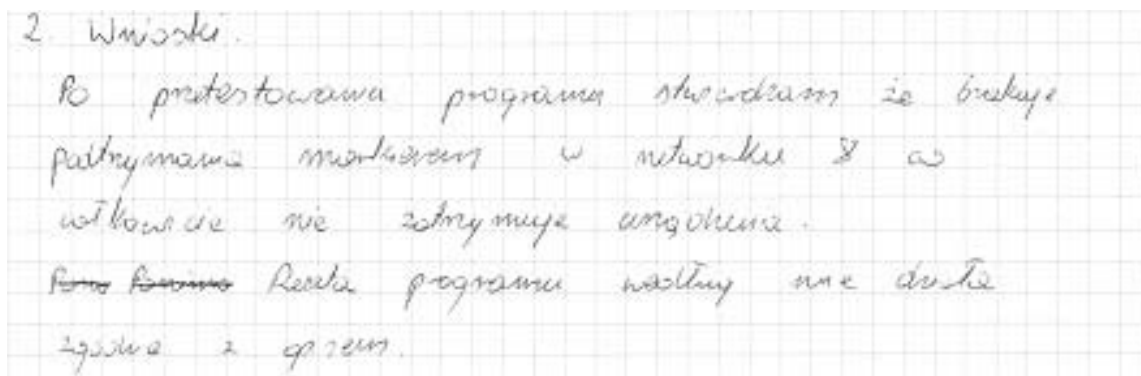 2. Wnioski.
Po przetestowaniu programu stwierdzam że brakuje
podtrzymania markerem w networku 8 co
całkowicie nie zatrzymuje urządzenia.
Pomimo Reszta programu według mnie działa
zgodnie z opisem.